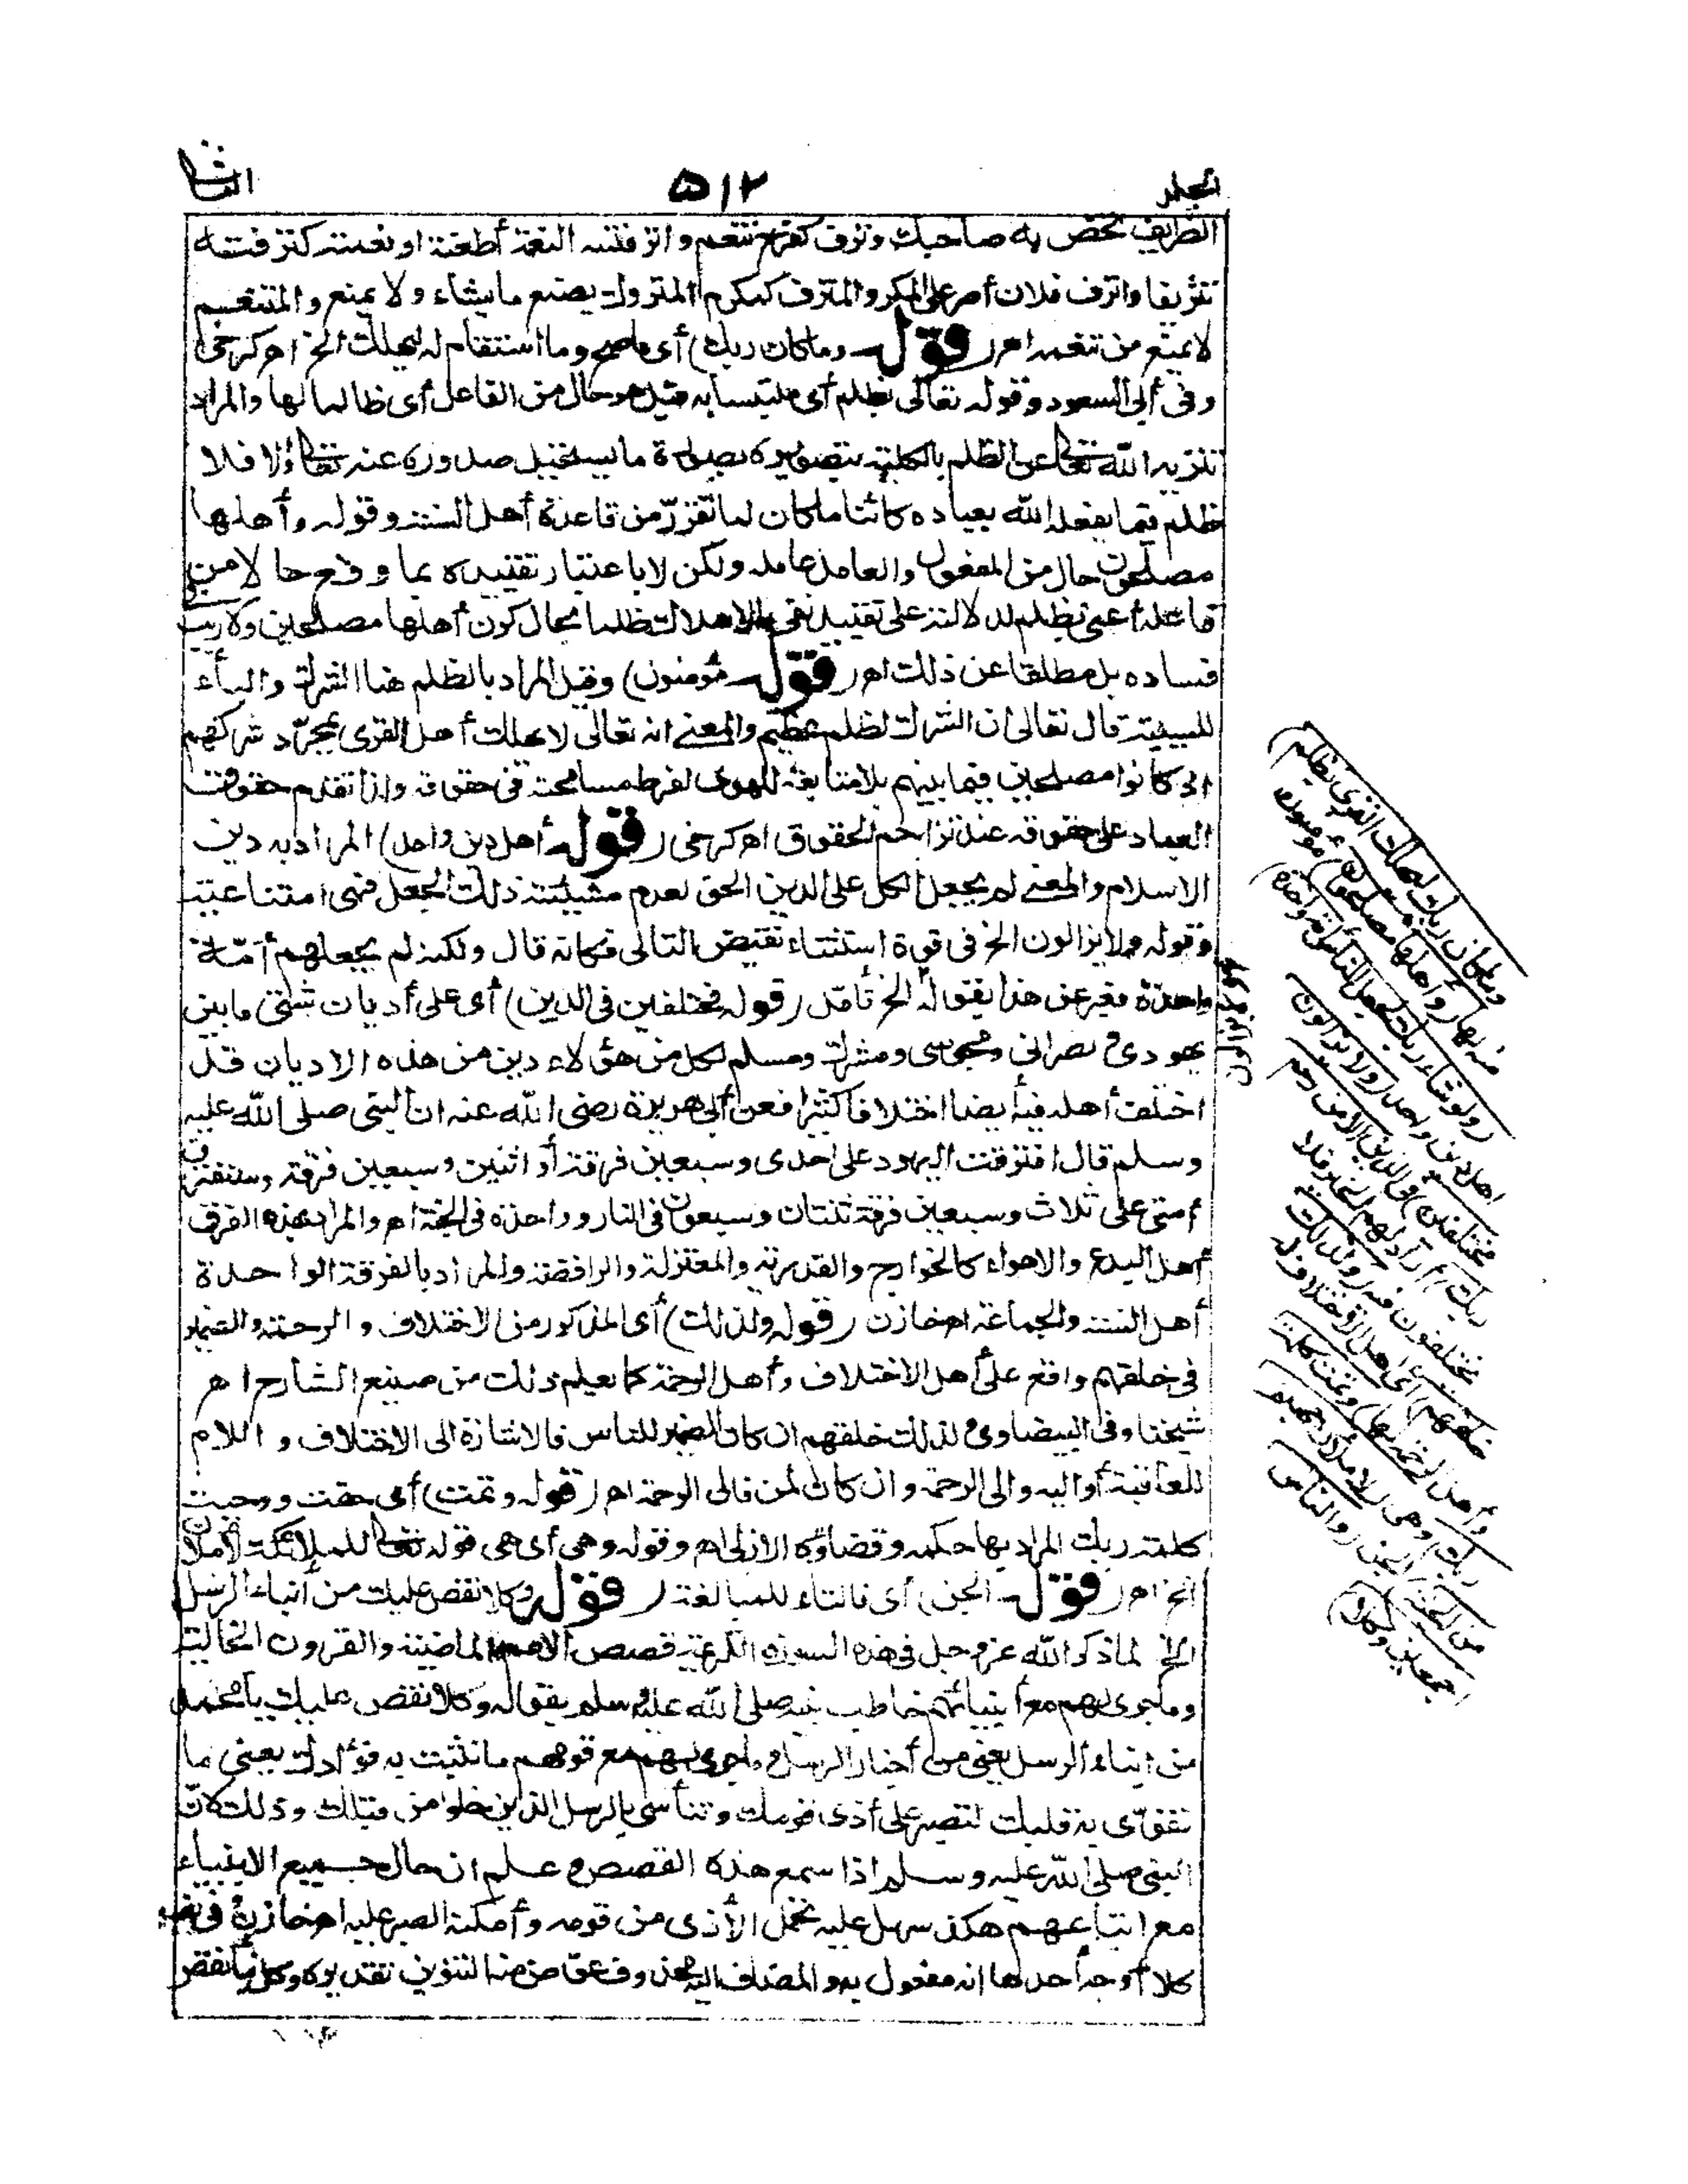 المجلد ٥١٢ الثانى
الظريف تخص به صاحبك وترف كفرح تنعم واترفته النعمة أطغته او نعمته كترفته
تتريفا واترف فلان أصر على المكر والمترف كمكرم المتروك يصنع ما يشاء ولا يمنع والمتنعم
لا يمنع من تنعمه اه (قوله وما كان ربك) أى ما صح وما استقام له ليهلك الخ اه كرخى
وفى أبى السعود وقوله تعالى بظلم أى ملتبسا به قيل هو حال من الفاعل أى ظالما لها والمراد
تنزيه الله تعالى عن الظلم بالكلية بتصويره بصورة ما يستحيل صدوره عنه تعالى والا فلا
ظلم فيما يفعله الله بعباده كائنا ما كان لما تقرر من قاعدة أهل السنة وقوله وأهلها
مصلحون حال من المفعول والعامل عامله ولكن لا باعتبار تقييده بما وقع حالا من
فاعله أعنى بظلم لدلالته على تقييد نفى الاهلاك ظلما بحال كون أهلها مصلحين ولا ريب فى
فساده بل مطلقا عن ذلك اه (قوله مؤمنون) وقيل المراد بالظلم هنا الشرك والباء
للسببية قال تعالى ان الشرك لظلم عظيم والمعنى انه تعالى لا يهلك أهل القرى بمجرد شركهم
إن كانوا مصلحين فيما بينهم بلا متابعة للهوى لفرط مسامحته فى حقوقه واذا تقدم حقوقت
العباد على حقوقه عند تزاحم الحقوق اه كرخى (قوله أهل دين واحد) المراد به دين
الاسلام والمعنى لم يجعل الكل على الدين الحق لعدم مشيئته ذلك الجعل فهى امتناعية
وقوله ولا يزالون الخ فى قوة استثناء نقيض التالى فكانه قال ولكنه لم يجعلهم أمة
واحدة فعبر عن هذا بقوله الخ تأمل (قوله مختلفين فى الدين) أى على أديان شتى ما بين
يهودى ونصرانى ومجوسى ومشرك ومسلم لكل من هؤلاء دين من هذه الاديان قد
اختلف أهله فيه أيضا اختلافا كثيرا فعن أبى هريرة رضى الله عنه ان النبى صلى الله عليه
وسلم قال افترقت اليهود على احدى وسبعين فرقة أو اثنين وسبعين فرقة وستفترق
أمتى على ثلاث وسبعين فرقة ثنتان وسبعون فى النار وواحدة فى الجنة اه والمراد بهذه الفرق
أهل البدع والاهواء كالخوارج والقدرية والمعتزلة والرافضة والمراد بالفرقة الواحدة
أهل السنة والجماعة اه خازن (قوله ولذلك) أى المذكور من الاختلاف والرحمة والضمير
فى خلقهم واقع على أهل الاختلاف وأهل الرحمة كما يعلم ذلك من صنيع الشارح اه
شيخنا وفى البيضاوى ولذلك خلقهم ان كان الضمير للناس فالاشارة الى الاختلاف واللام
للعاقبة أو اليه والى الرحمة وان كان لمن فالى الرحمة اه (قوله وتمت) أى حقت ووجبت
كلمة ربك المراد بها حكمه وقضاؤه الازلى اه وقوله وهى أى هى قوله تعالى للملائكة لأملأن
الخ اه (قوله الجن) أى فالتاء للمبالغة (قوله وكلا نقص عليك من أنباء الرسل
الخ) لما ذكر الله عز وجل فى هذه السورة الكريمة قصص الامم الماضية والقرون الخالية
وما جرى لهم مع أنبيائهم خاطب نبيه صلى الله عليه وسلم بقوله وكلا نقص عليك يا محمد
من انباء الرسل يعنى من أخبار الرسل وما جرى لهم مع قومهم ما نثبت به فؤادك يعنى ما
نقوى به قلبك لتصبر على أذى قومك وتتأسى بالرسل الذين خلوا من قبلك وذلك لان
النبى صلى الله عليه وسلم اذا سمع هذه القصص وعلم ان حال جميع الانبياء
مع اتباعهم هكذا سهل عليه تحمل الأذى من قومه وأمكنه الصبر عليه اه خازن وفى نصب
كلا أوجه أحدها انه مفعول به والمضاف اليه محذوف عوض منه التنوين تقديره وكل نبأ نقص
وما كان ربك ليهلك القرى بظلم)
منه لها (وأهلها مصلحون) مؤمنون
(ولو شاء ربك لجعل الناس أمة واحدة)
اهل دين واحد (ولا يزالون
مختلفين) فى الدين (الا من رحم
ربك) أراد لهم الخير فلا
يختلفون فيه (ولذلك
خلقهم) أى اهل الاختلاف له
وأهل الرحمة لها (وتمت كلمة
ربك) وهى (لأملأن جهنم
من الجنة) الجن (والناس
أجمعين وكلا)